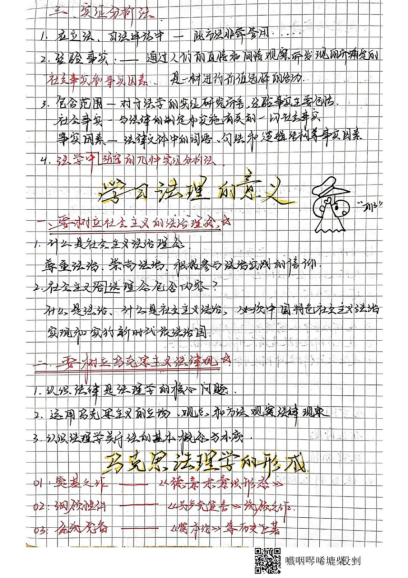 三、实证分析法
1. 在立法、司法实践中 —
2. 经验事实 — 通过人们的直接和间接观察所发现的确定的
社会事实和事实因素. 是一种进行价值选择的活动.
3. 包含范围 — 对于法学的实证研究而言, 经验事实主要包括:
社会事实 — 与法律的制定和实施有关的一切社会事实
事实因素 — 法律文件中的词语、句法和逻辑结构等事实因素
4. 法学中 的几种实证分析法
学习法理的意义
一、要树立社会主义的法治理念 ☆
1. 什么是社会主义法治理念
尊重法治、崇尚法治、积极参与法治实践的情怀.
2. 社会主义法治理念包含内容?
什么是法治、什么是社会主义法治,
实现和 新时代 法治国
二、要树立马克思主义法律观 ☆
1. 认识法律是法理学的核心问题.
2. 运用马克思主义的立场、观点、和方法观察法律现象
3. 认识法理学关于法的基本概念与本质.
马克思法理学的形成
01. 奠基之作 — 《德意志意识形态》
02. 纲领性 — 《共产党宣言》 纲领之作.
03. — 《资本论》
哦咽哔唏墟柴殁到